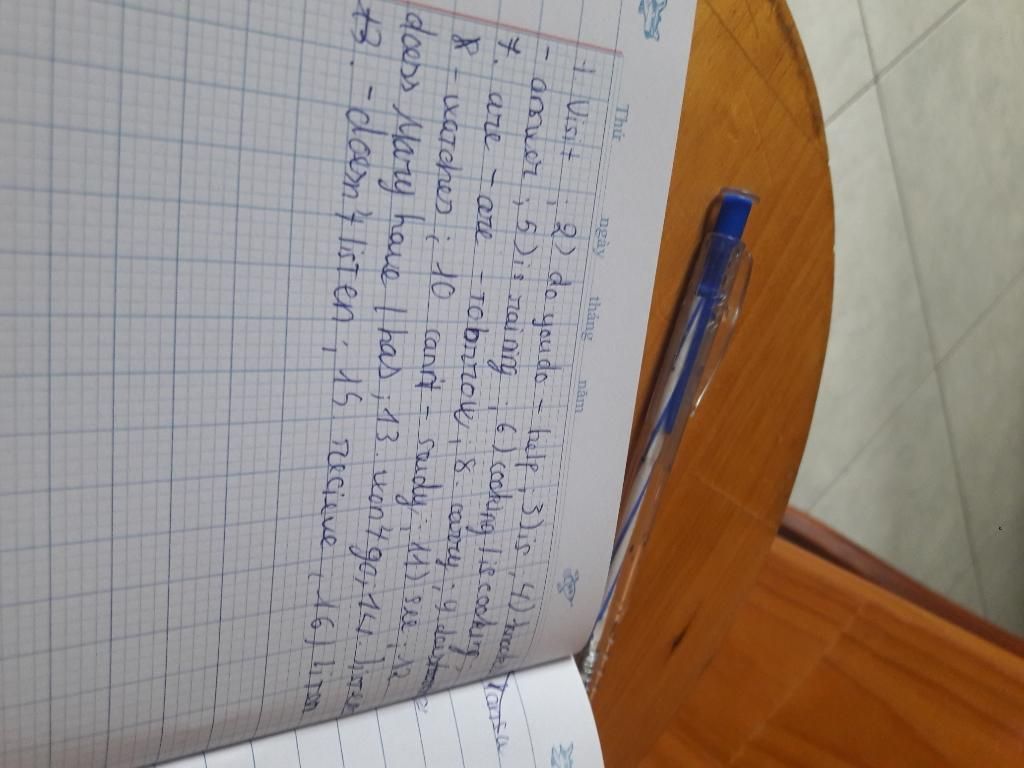 Thứ ngày tháng năm
1 Visit ; 2) do you do - help ; 3) is , 4)
- answer ; 5) is raining ; 6) cooking / is cooking.
7. are - are - to borrow ; 8. carry ; 9.
- watches ; 10 can't - study ; 11) see ; 12
does Mary have / has ; 13. won't go , 14.
- doesn't listen ; 15 recieve , 16)